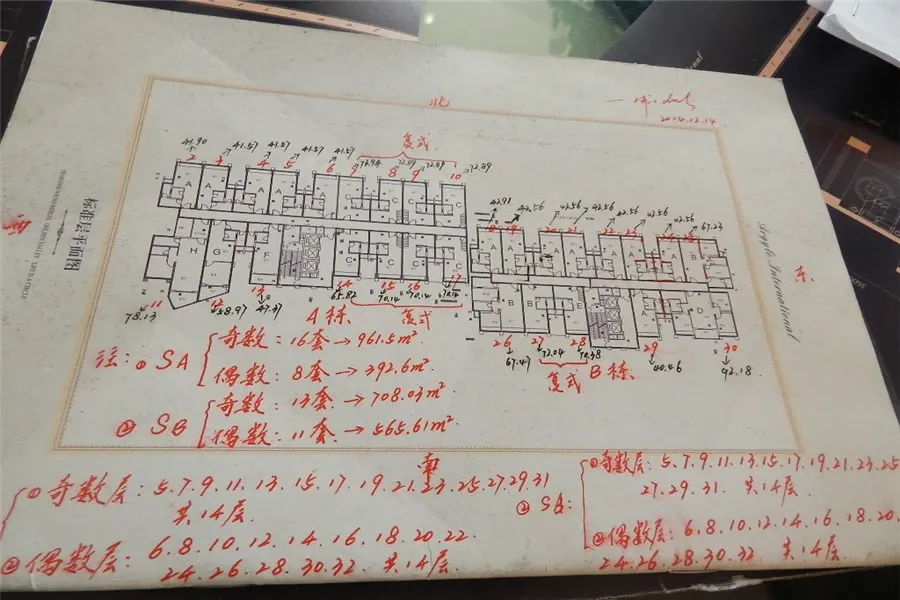 北
2014.12.14
复式
41.90 41.57 41.57 41.57 41.57 72.89 72.89
2 3 4 5 6 7 8 9 10
A A A A A A C C C C
42.91 42.56 42.56 42.56 42.56 42.56 42.56 67.23
20 21 22 23
A A A A A A A B
标准层平面图
东
Argyle International
H G F C C C C
B B E A D
11 12 13 14 15 16 17
78.13 58.97 47.37 65.82 70.14 70.14 70.14
A栋 复式
26 27 28 29 30
67.47 72.04 70.38 40.46 92.18
复式 B栋
注: ① SA
奇数: 16套 → 961.5m²
偶数: 8套 → 392.6m²
② SB
奇数: 13套 → 708.03m²
偶数: 11套 → 565.61m²
南
①奇数层: 5.7.9.11.13.15.17.19.21.23.25.27.29.31
共14层.
②偶数层: 6.8.10.12.14.16.18.20.22.
24.26.28.30.32. 共14层.
② SB:
①奇数层: 5.7.9.11.13.15.17.19.21.23.25
27.29.31. 共14层.
②偶数层: 6.8.10.12.14.16.18.20.
24.26.28.30.32. 共14层.